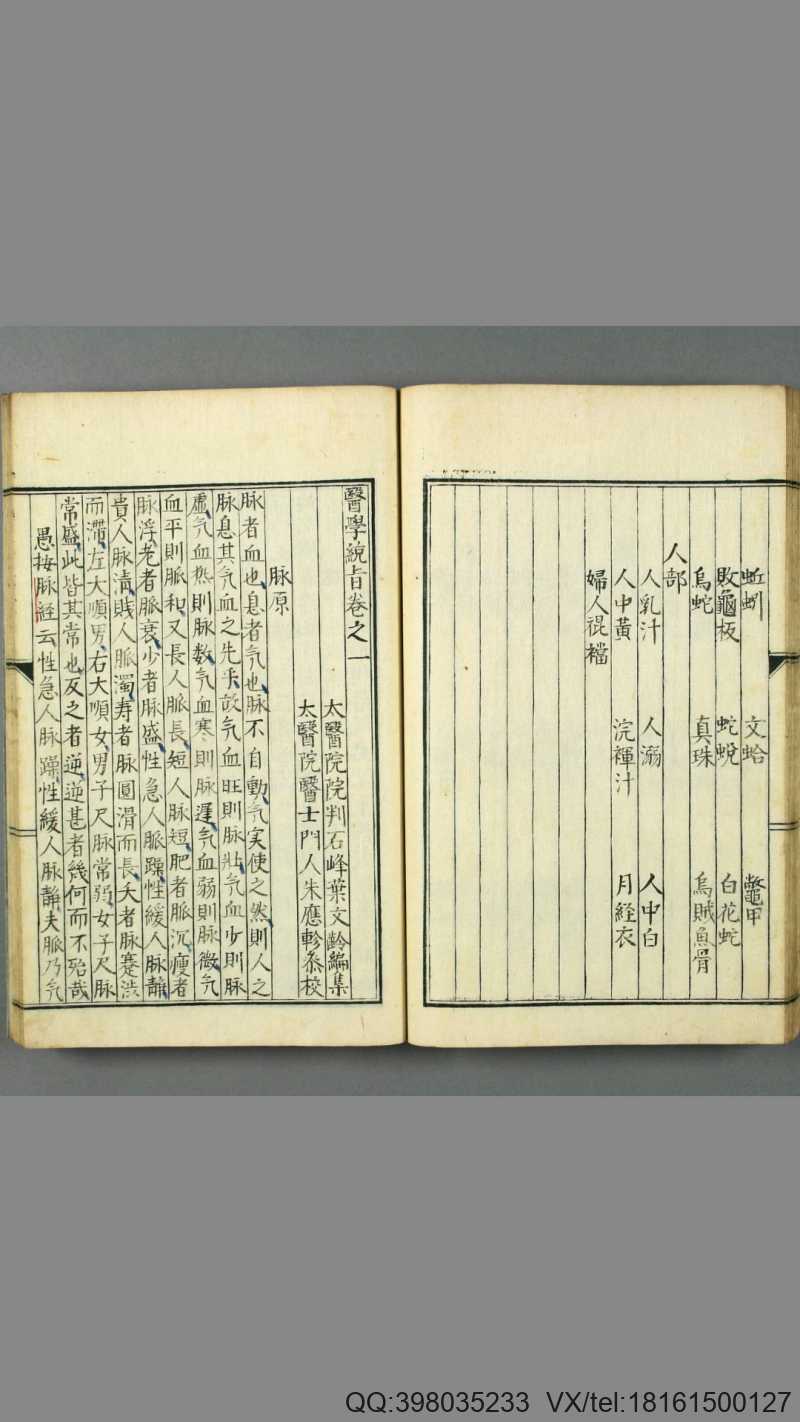 蚯蚓 文蛤 鼈甲
敗龜板 蛇蛻 白花蛇
烏蛇 真珠 烏賊魚骨
人部
人乳汁 人溺 人中白
人中黃 浣褌汁 月経衣
婦人裩襠
醫學統旨卷之一
太醫院院判石峰葉文齡編集
太醫院醫士門人朱應軫叅校
脉原
脉者血也息者氣也脉不自動氣实使之然則人之
脉息其氣血之先乎故氣血旺則脉壯氣血少則脉
虛氣血热則脉数氣血寒則脉遲氣血弱則脉微氣
血平則脈和又長人脈長短人脉短肥者脈沉瘦者
脉浮老者脈衰少者脉盛性急人脈躁性緩人脉靜
貴人脉清賎人脈濁寿者脉圓滑而長夭者脉蹇渋
而滯左大順男右大順女男子尺脉常弱女子尺脉
常盛此皆其常也反之者逆逆甚者幾何而不殆哉
愚按脉経云性急人脉躁性緩人脉靜夫脈乃氣
QQ:398035233 VX/tel:18161500127